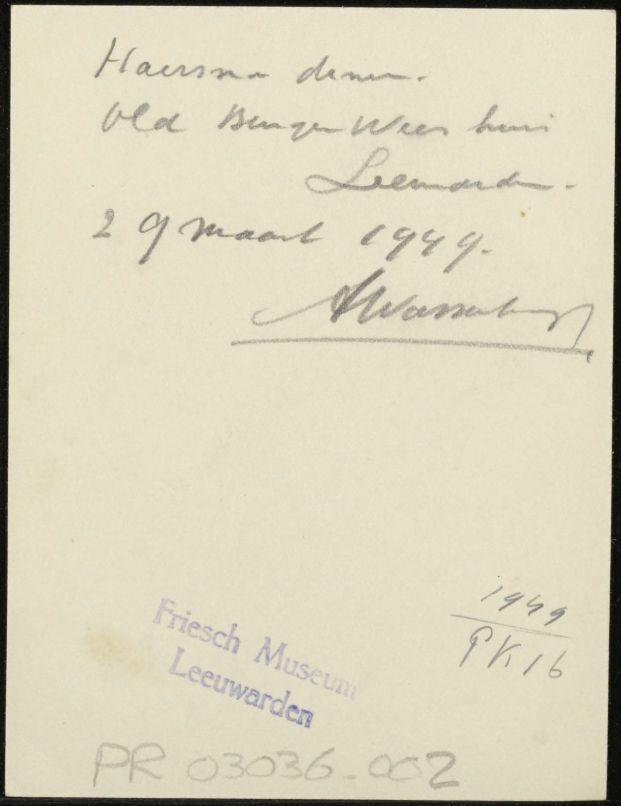 Haersma
Old Burger Wees huis
Leeuwarden.
29 maart 1949.
AWassenbergh
1949
PK16
Friesch Museum
Leeuwarden
PR 03036-002